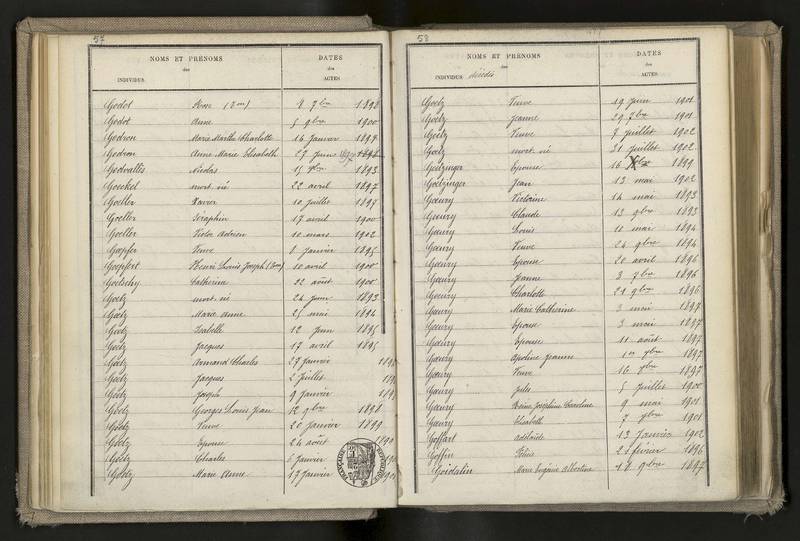 57
NOMS ET PRÉNOMS DATES
des des
INDIVIDUS ACTES
Godot Rose 8 7bre 1898
Godot Anne 5 9bre 1900
Godron Marie Marthe Charlotte 16 Janvier 1897
Godron Anne Marie Elisabeth 27 Juin
Nicolas 15 1893
Goeckel mort né 22 avril 1897
Goeller Xavier 10 Juillet 1895
Goeller Séraphin 17 avril 1900
Goeller Victor Adrien 10 mars 1902
Goepfer Veuve 8 Janvier 1895
Goepfert Henri Louis Joseph 10 avril 1900
Goetschy Catherine 22 août 1900
Goetz mort né 24 Juin 1893
Goetz Marie Anne 25 mai 1894
Goetz Isabelle 12 Juin 1895
Goetz Jacques 17 avril 1895
Goetz Armand Charles 27 Janvier
Goetz Jacques 2 Juillet
Goetz Joseph 9 Janvier
Goetz Georges Louis Jean 12 9bre 1898
Goetz Veuve 20 Janvier 1899
Goetz Epouse 24 août
Goetz Charles 6 Janvier
Goetz Marie Anne 17 Janvier
58
NOMS ET PRÉNOMS DATES
des des
INDIVIDUS décédés ACTES
Goetz Veuve 19 Juin 1901
Goetz Jeanne 29 7bre 1901
Goetz Veuve 7 Juillet 1902
Goetz mort né 31 Juillet 1902
Goetzinger Epouse 16 1899
Goetzinger Jean 13 mai 1902
Goeury Victorine 14 mai 1893
Goeury Claude 13 9bre 1893
Goeury Louis 11 mai 1894
Goeury Veuve 24 9bre 1894
Goeury Epouse 20 avril 1896
Goeury Jeanne 8 7bre 1896
Goeury Charlotte 29 9bre 1896
Goeury Marie Catherine 3 mai 1897
Goeury Epouse 3 mai 1897
Goeury Epouse 11 août 1897
Goeury Apoline Jeanne 1er 1897
Goeury Veuve 16 1897
Goeury Jules 5 Juillet 1900
Goeury Reine Joséphine Caroline 9 mai 1901
Goeury Elisabeth 7 1901
Goffart Adélaïde 13 Janvier 1902
Goffin Félicie 21 février 1896
Marie Eugénie Albertine 18 9bre 1897